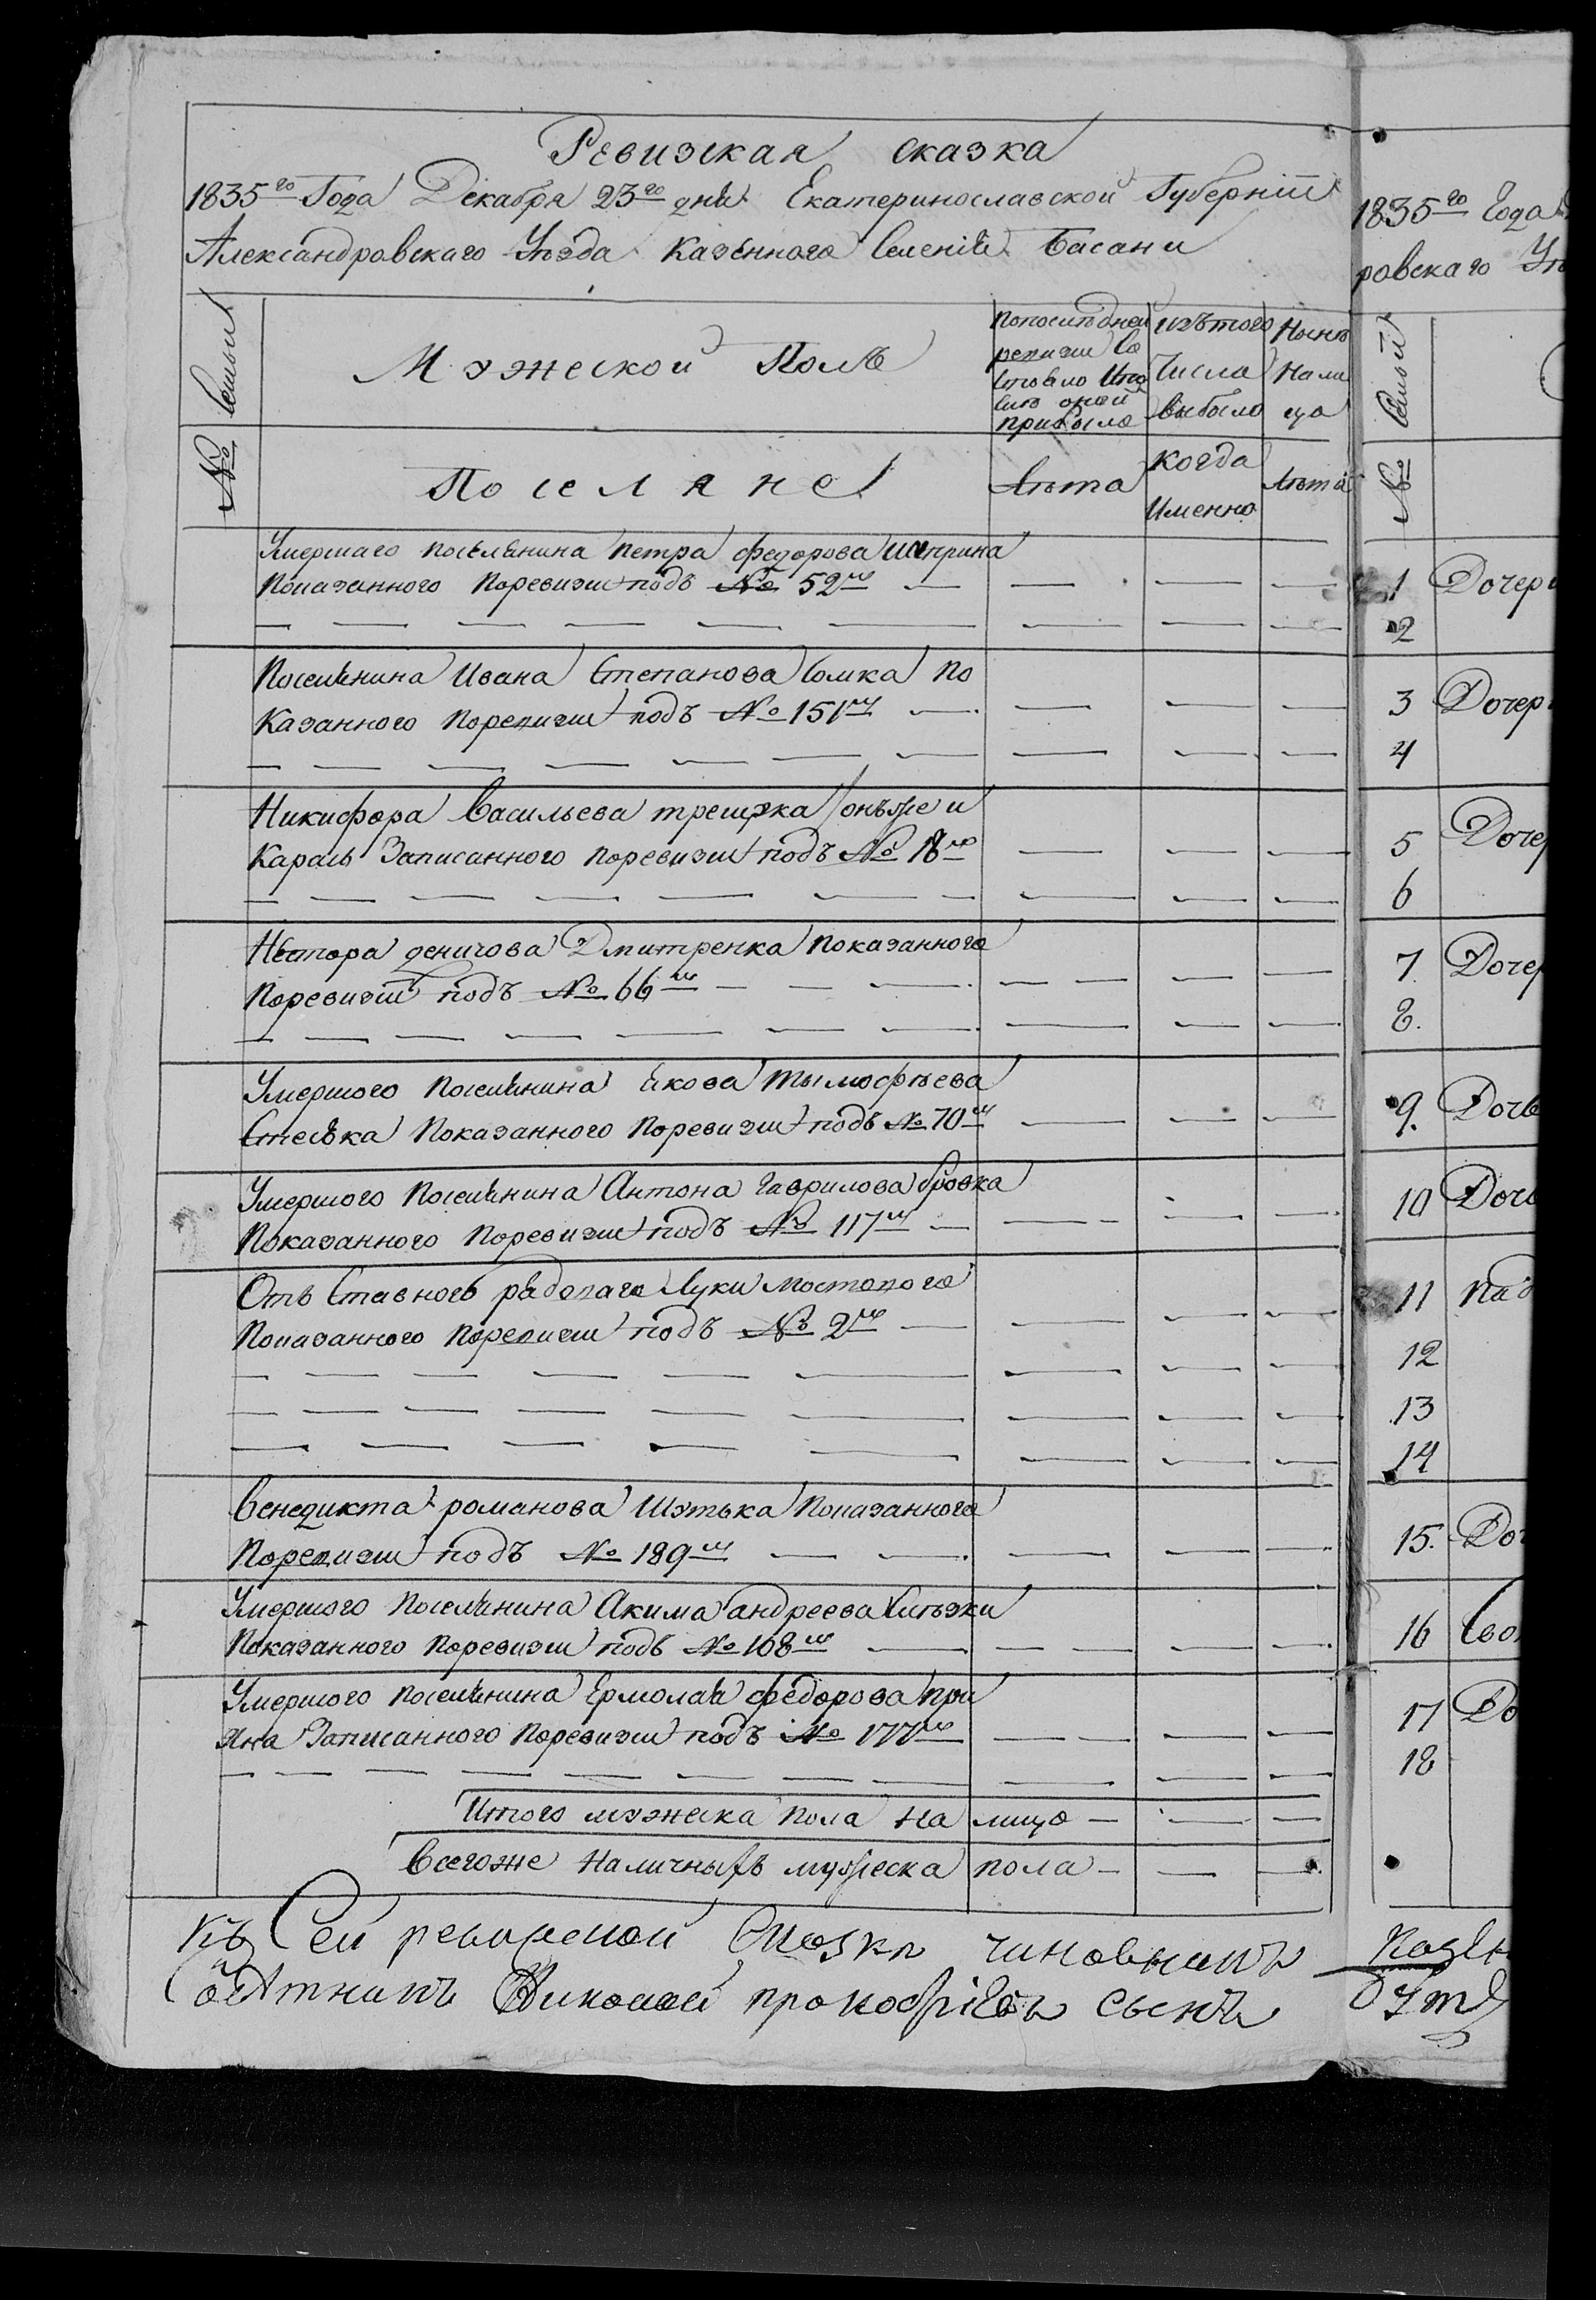 Ревизская сказка
1835го Года Декабря 23го дня Екатеринославской Губерніи
Александровскаго Уезда Казенного Селенія Басани
№ Семьи
Мужеской Полъ
Попоследней ревизіи Состояло Ипосле оной прибыло
изътого Числа выбыло
Ныне Налица
Поселяне
Лета
когда Именно
Лета
Умершаго поселянина Петра Федорова
Показанного Поревизіи подъ № 52м —
Поселянина Ивана Степанова Сомка По
Казанного Поревизіи подъ № 151м —
Никифора Васильева онъже и
Карась Записанного поревизіи подъ № 18м
Нестора Дмитренка показанного
Поревизіи подъ № 66м —
Умершого Поселянина Якова Тымофеева
Показанного Поревизіи подъ № 70м
Умершого Поселянина Антона Гаврилова бровка
Показанного Поревизіи подъ № 117м —
Отъ Ставного рядоваго Луки Мостового
Показанного Поревизіи подъ № 2м —
Венедикта романова Шутька Показанного
Поревизіи подъ № 189м —
Умершого Поселянина Акима андреева
Показанного Поревизіи подъ № 108м —
Умершого поселянина Ермолая федорова При
Записанного Поревизіи подъ № 177м
Итого мужеска пола на лицо —
Всегоже Наличныхъ мужеска пола —
Къ Сей ревизской Сказки чиновникъ
Николай прокофіевъ сынъ
1835го Года
ровскаго Уе
№ Семьи
1 Дочери
2
3 Дочер
4
5 Дочер
6
7. Дочер
8.
9. Дочь
10 Дочь
11 Пад
12
13
14
15. Доч
16 Сво
17 До
18